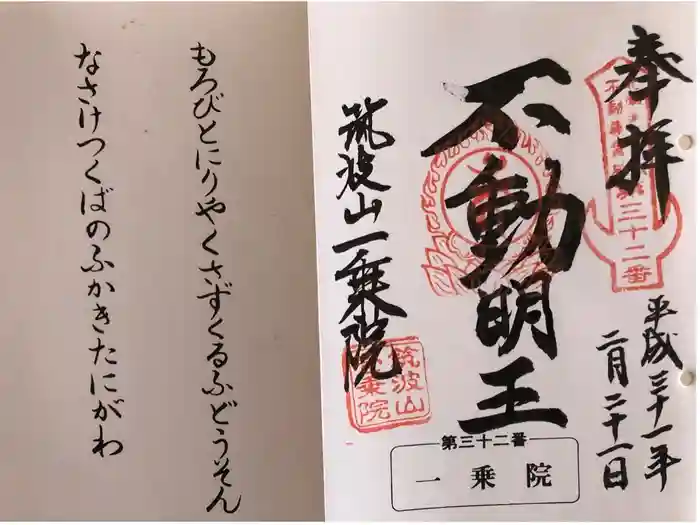 奉拝
平成三十一年
二月二十一日
三十二番
不動明王
筑波山一乗院
筑波山
一乗院
第三十二番
一乗院
もろびとにりやくさずくるふどうそん
なさけつくばのふかきたにがわ